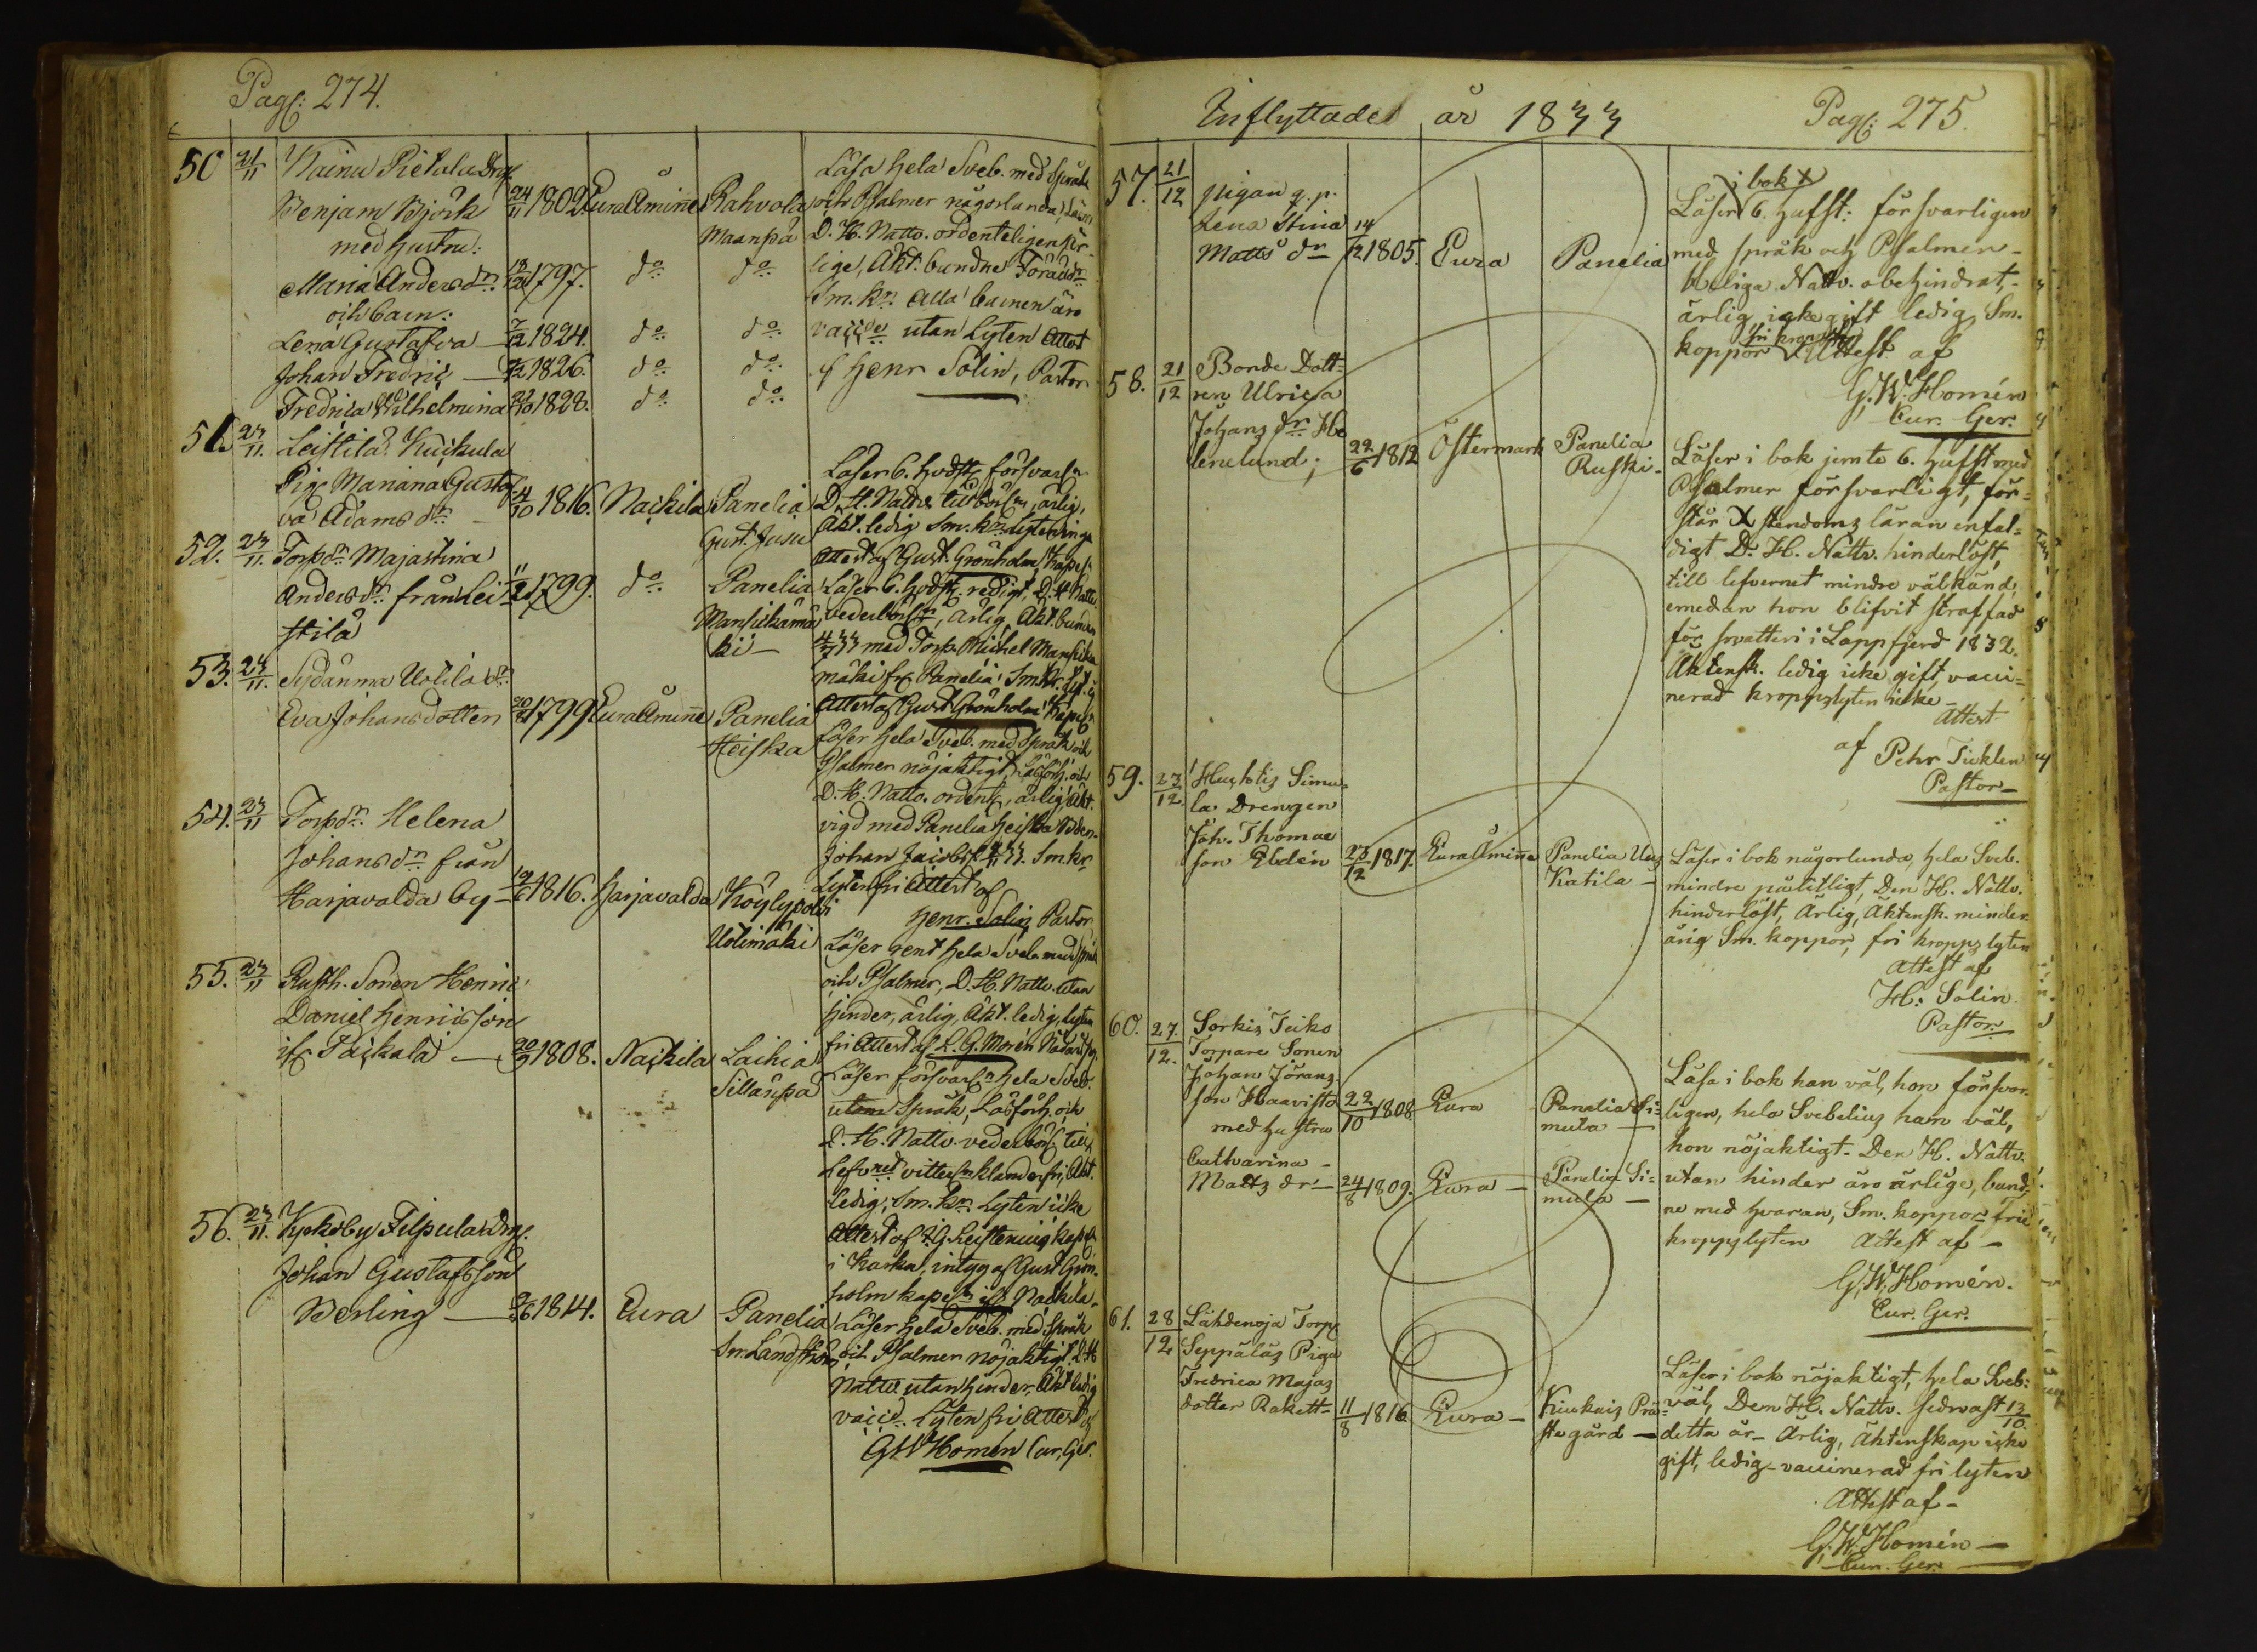 Pag: 274.
50 21/11 Kainu Pietala Drg.
Benjam Björk 24/11 1802. Eura Åminne Rahvola
Maanpä
med hustru:
Maria Anders dr. 1797. do do
och barn:
Lena Gustafva 7/12 1824. do do
Johan Fredric 1826. do do
Fredrica Wilhelmina 1828. do do
Läsa hela Sveb. med språk
och Psalmer någorlunda,
D. H. Nattv. ordenteligen
lige, Äkt. bundne
Sm. kr. Alla barnen äro
vacc. utan Lyten Attest
af Henr Solin, Pastor
51. 23/11. Leistilä Kuickula
Pig. Mariana Gustaf-
va Adams dr. 4/10 1816. Nackila Panelia
Gust. Jusu
Läser 6. hvdst. försvarl.
D. H. Nattv. ärlig,
Äkt. ledig Sm. kr. Lyten inga
Attest af Gust. Grönholm, Kapel.
52. 23/11. Torpdr. Majastina
Anders dr. från Lei-
stilä 1799. do Panelia
Mansickamä
ki
Läser 6. hvdst. redigt, D. H. Nattv.
vederbörl., ärlig, Äkt. bunden
med Torp. Michel Mansika
mäki fr. Panelia, Sm. kr.
Attest af Gust Grönholm Kapel.
53. 23/11. Sydänma Uotila dr.
Eva Johansdotter 1799 Eura Åminne Panelia
Heiska
Läser hela Sveb. med Språk och
Psalmer nöjaktigt, Läsförh. och
D. H. Nattv. ordentl., ärlig, Äkt.
vigd med Panelia Heiska Bden.
Johan Jacobs. Sm kr
Lyten fri Attest af
Henr. Solin Pastor
54. 23/11 Torpdr. Helena
Johans dr från
Harjavalda by 1816. Harjavalda Köylypolvi
Uotimäki
Läser rent hela Sveb. med språk
och Psalmer, D. H. Nattv. utan
hinder, ärlig, Äkt. ledig, lyten
fri Attest af L. G. Morén
55. 23/11 Rusth. Sonen Henric
Daniel Henricsson
ifr. Paickala 1808. Nackila Laihia
Sillanpä
Läser försvarl. hela Sveb.
utan Språk, Läsförh. och
D. H. Nattv. vederbörl. till
Lefvnet klanderfri, Äkt.
ledig, Sm. kr. Lyten icke
Attest af kapel.
i Karkul, intyg af Gust Grön-
holm kapel. i Nackila.
56. 23/11. Kyrkoby Filpulas Drg.
Johan Gustafsson
Werling 1814. Eura Panelia
Sm. Landstedt
Läser hela Sveb. med Språk
och Psalmer nöjaktigt, D. H
Nattv. utan hinder, Äkt ledig
vacc. Lyten fri Attest af
G. W. Homén Cur. Ger.
Inflyttade år 1833 Pag: 275.
57. 21/12 pigan q. p.
Lena Stina
Matts dr 14/12 1805. Eura Panelia
i bok
Läser 6. hufst: försvarligen
med språk och Psalmer
H. liga. Nattv. obehindrat,
ärlig icke gift ledig, Sm.
koppor fri kroppslyten Attest af
G. W. Homén
Cur. Ger.
58. 21/12 Bonde Dott-
ren Ulrica
Johans dr He
lenelund; 22/6 1812 Östermark Panelia
Ruski-
Läser i bok jemte 6. hufst med
Psalmer försvarligt, för-
står Xstendoms läran enfal-
digt D. H. Nattv. hinderlöst,
till lefvernet mindre välkänd,
emedan hon blifvit straffad
för snatteri i Lappfjerd 1832.
Äktensk. ledig icke gift, vacci-
nerad kroppslyten icke
Attest
af Pehr Ticklen
Pastor
59. 23/12 Huxtis Simu-
la Drengen
Joh. Thomae
son Ebdén 23/12 1817. Eura Åminne Panelia Uus
Katila
Läser i bok någorlunda, hela Sveb.
mindre pålitligt, Den H. Nattv.
hinderlöst, Ärlig, Äktensk. minder
årig Sm. koppor, fri kropps lyten
Attest af
H. Solin
Pastor
60. 27/12. Sorkis Teiko
Torpare Sonen
Johan Jörans
son Haavisto 22/10 1808 Eura Panelia Si-
mula
med hustru
Catharina
Matts dr 24/8 1809. Eura Panelia Si-
mula
Läsa i bok han väl, hon försvar-
ligen, hela Svebelius han väl,
hon nöjaktigt. Den H. Nattv.
utan hinder äro ärlige, bund-
ne med hvaran, Sm. koppor fri
kroppslyten Attest af
G. W. Homén.
Cur. Ger.
61. 28/12 Lähdenoja Torp
Seppäläs Piga
Fredrica Majas
dotter Rakett 11/8 1816 Eura Kiukais Prä-
stegård
Läser i bok nöjaktigt, hela Sveb:
väl, Den H. Nattv. sednast 13/10
detta år. Ärlig, Äktenskap icke
gift, ledig vaccinerad fri lyten
Attest af
G. W. Homén
Cur. Ger.